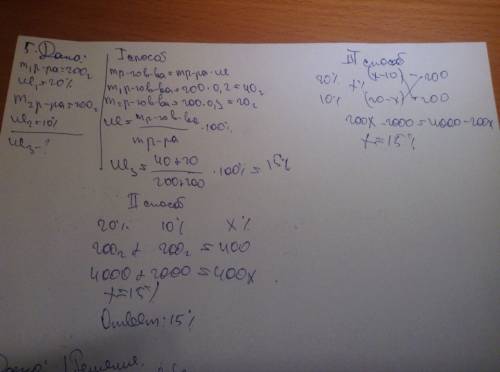 5. Дано:
m₁ р-ра = 200г
ω₁ = 20%
m₂ р-ра = 200г
ω₂ = 10%
ω₃ - ?
I способ
m р-ов. в-ва = m р-ра · ω
m₁ р-ов. в-ва = 200 · 0,2 = 40г
m₂ р-ов. в-ва = 200 · 0,1 = 20г
ω = m р-ов. в-ва / m р-ра · 100%
ω₃ = 40+20 / 200+200 · 100% = 15%
II способ
20% 10% x%
200г + 200г = 400
4000 + 2000 = 400x
x = 15%
Ответ: 15%
III способ
20% (x-10) 200
x%
10% (20-x) 200
200x - 2000 = 4000 - 200x
x = 15%
Решение.